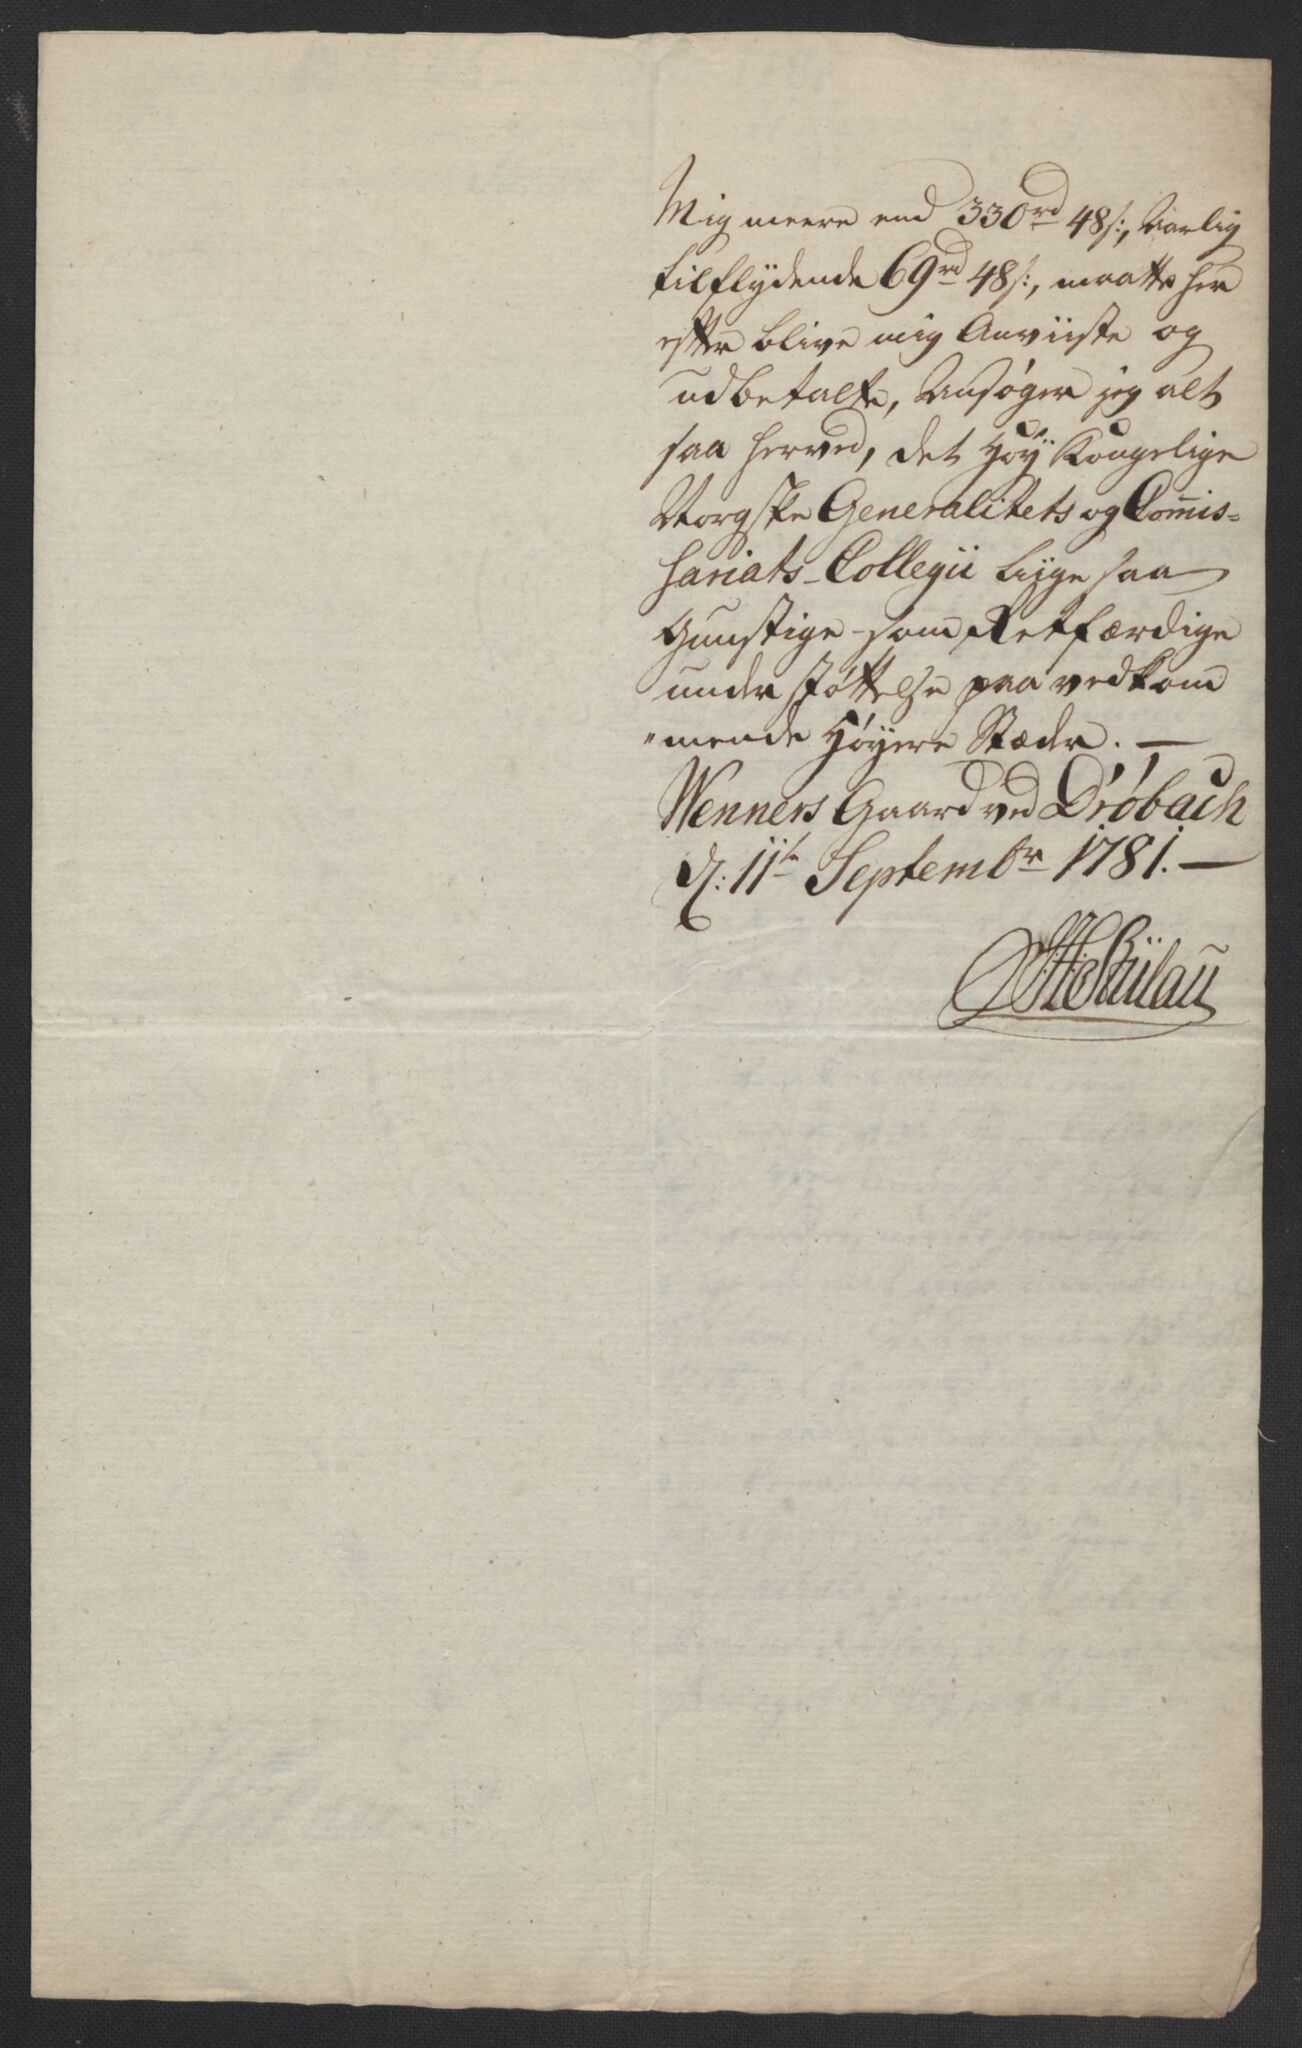 Mig meere end 330rd 48s:, Aarlig
tilflydende 69rd 48s:, maatte her
efter blive mig Anviiste og
udbetalte, Ansøger jeg alt
saa herved, det Høÿ Kongelige
Norgske Generalitets og Com̅is=
sariats-Collegii liige saa
Gunstige som Retfærdige
under støttelse paa vedkom
"mende Høÿere Stæder. —
Wenners Gaard ved Drøbach
d: 11te Septembr 1781. —